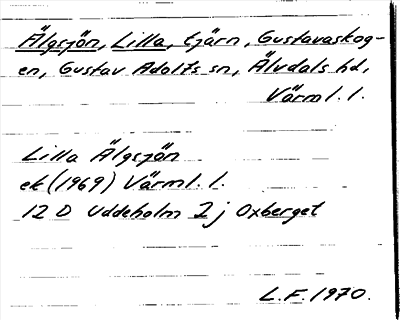 Älgsjön, Lilla, tjärn, Gustavaskog-
en, Gustav Adolfs sn, Älvdals hd,
Värml. l.
Lilla Älgsjön
ek (1969) Värml. l.
12 D Uddeholm 2 j Oxberget
L.F. 1970.